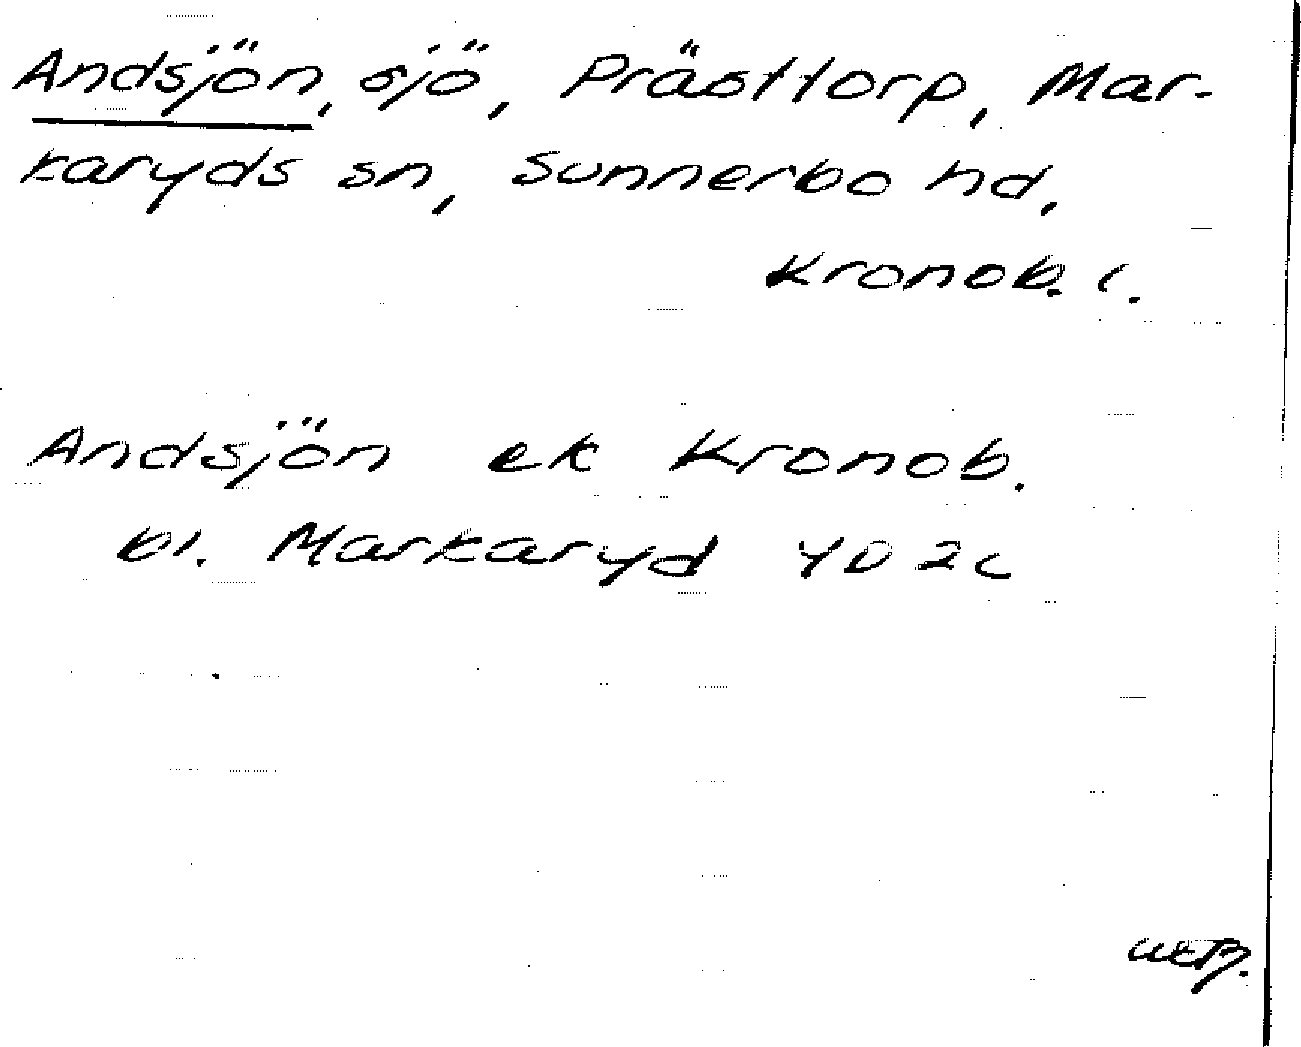 Andsjön, sjö, Prästtorp, Mar-
karyds sn, Sunnerbo hd,
Kronob. l.
Andsjön ek Kronob.
bl. Markaryd 4D 2c